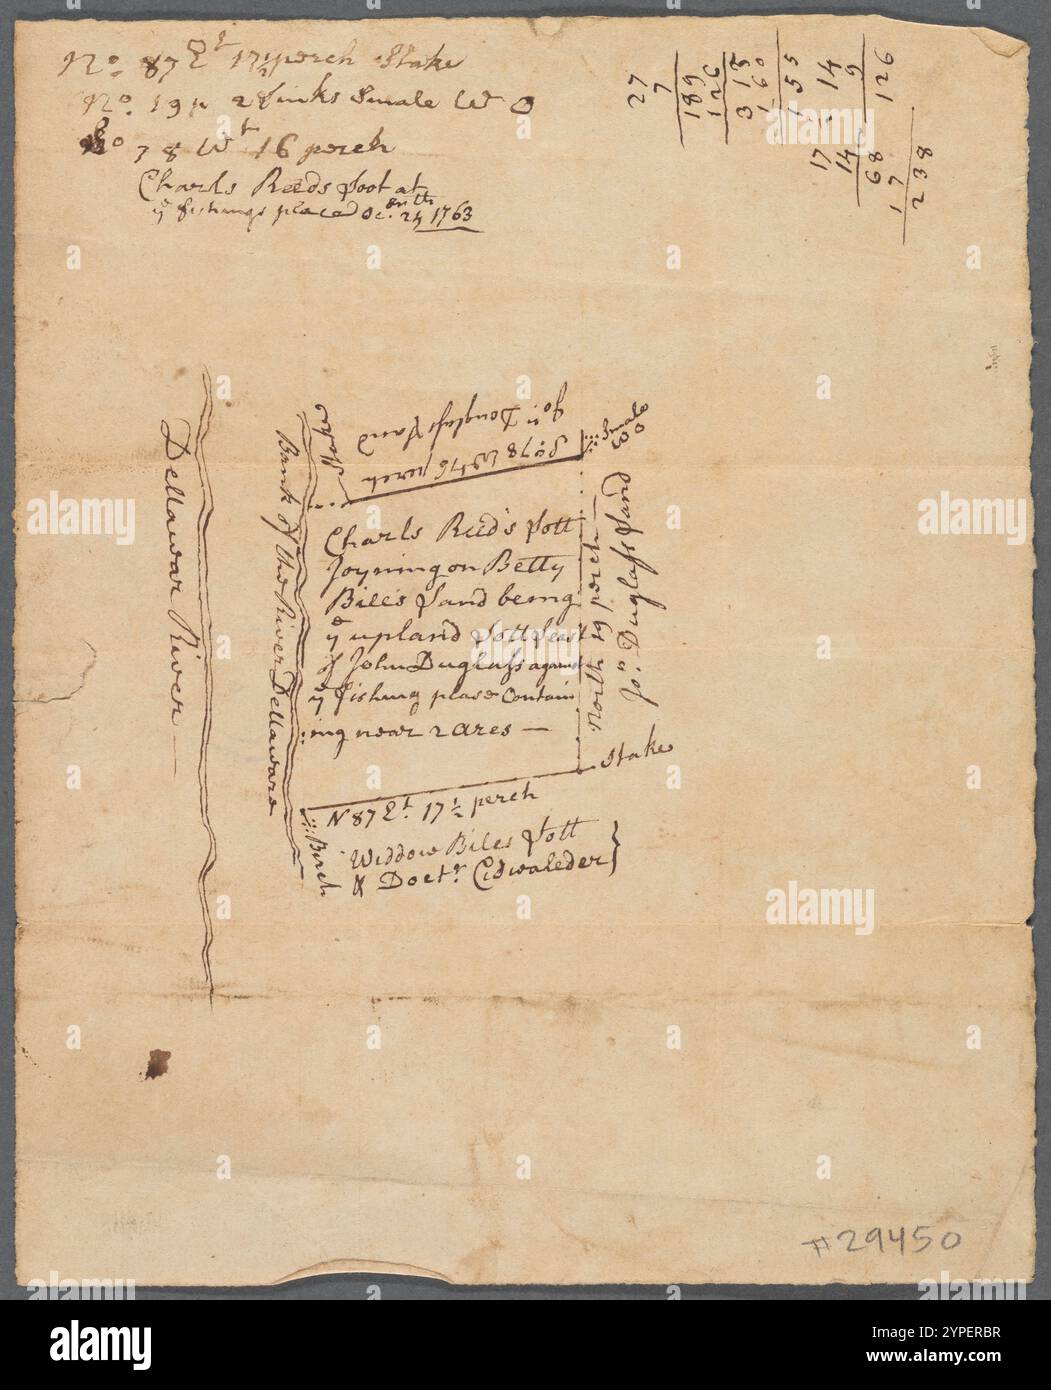 No. 87 Et 17 1/2 perch Stake
No. 19 p 2 Links Smale W O
So 78 Wt 16 perch
Charls Reeds Lott at
ye fishings placed Oc. 24 1763
27
7
189
126
313
160
155
14
9
126
17
14
68
17
238
Dellawar River
Bank of the River Dellaware
Stake
Jon Douglass Land
So 78 Wt 16 perch
Smale
W O
Charls Reed's Lott
Joyning on Betty
Biles Land being
ye upland Lott
of John Duglass against
ye fishing place Contain
ing near 2 Acres —
North 19 perch
Jon Duglass Land
Stake
N 87 Et. 17 1/2 perch
Birch
Widdow Biles Lott
& Doctr. Cidwaleder }
#29450
alamy
Image ID: 2YPERBR
www.alamy.com